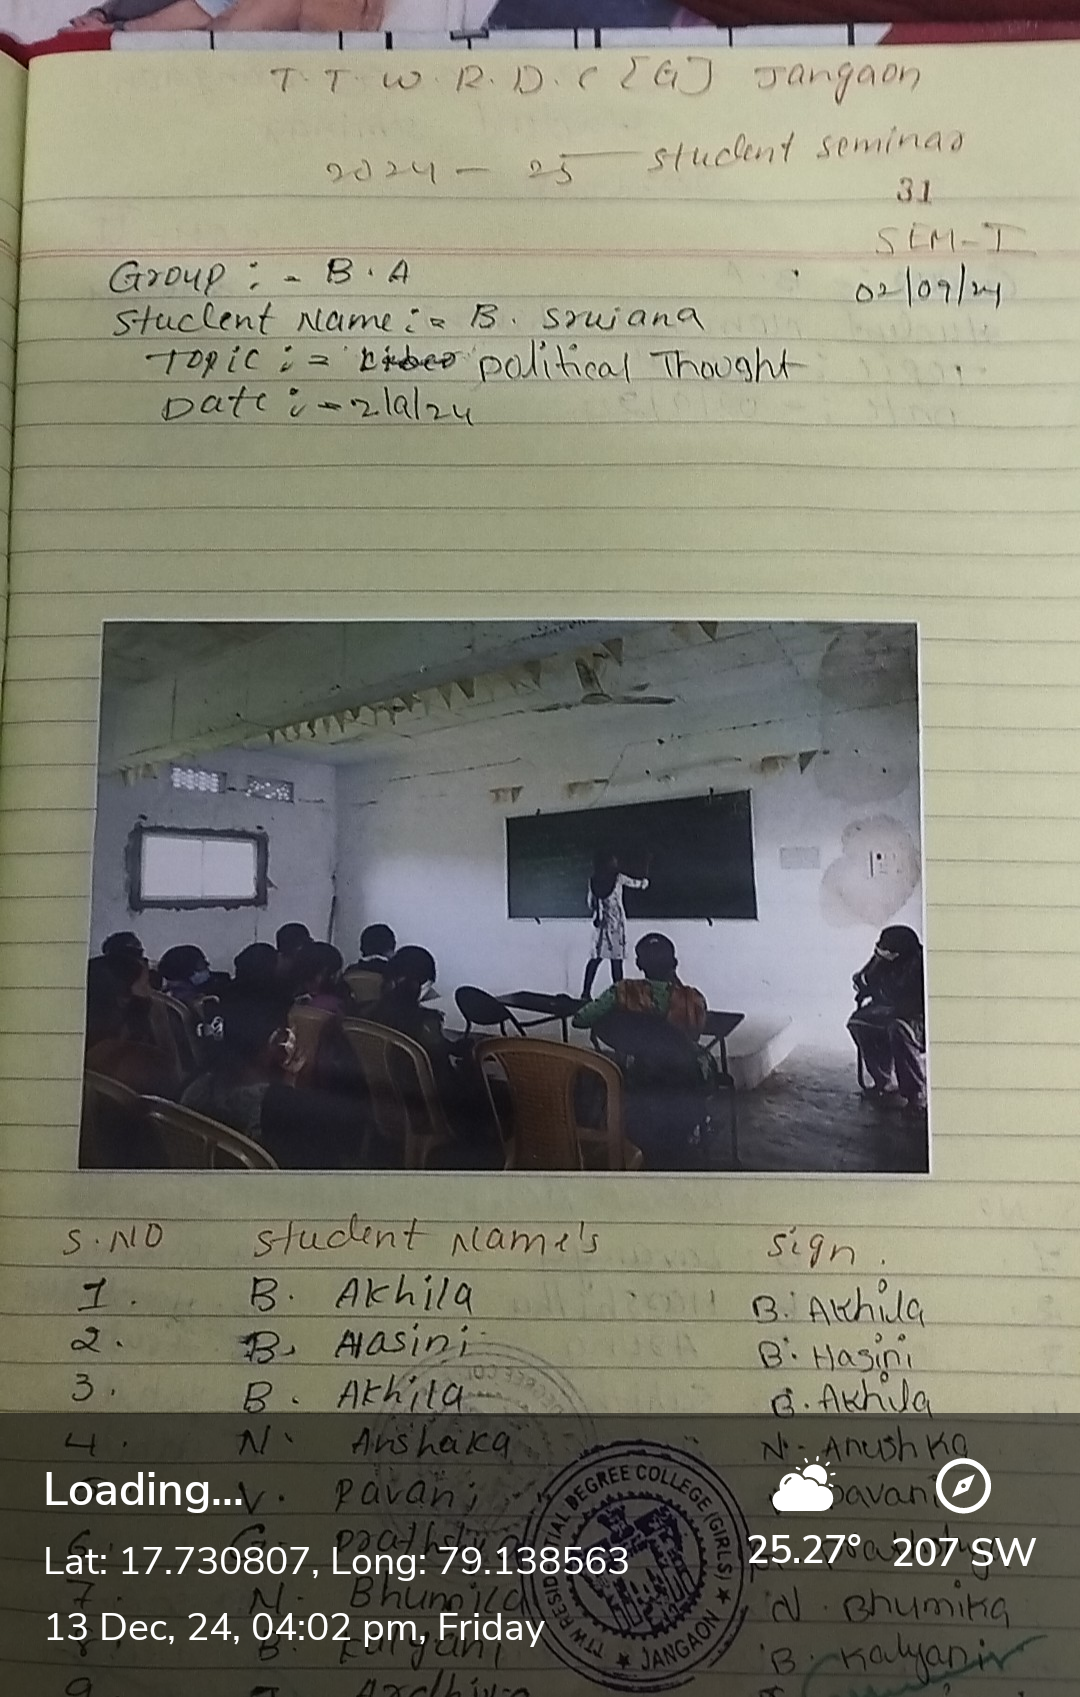 T.T.W.R.D.C [G] Jangaon
2024 - 25 student seminar
31
SEM-I
Group :- B.A
02/09/24
Student Name:- B. Srujana
Topic :- political Thought
Date :- 2/9/24
S.NO Student Name's Sign.
1. B. Akhila B. Akhila
2. B. Hasini B. Hasini
3. B. Akhila B. Akhila
4. N. Anshaka N. Anushka
V. Pavani pavani
6.
7. N. Bhumika N. Bhumika
8. B. Kalyani B. Kalyani
9
TTW RESIDENTIAL DEGREE COLLEGE (GIRLS)
★ JANGAON ★
Loading...
Lat: 17.730807, Long: 79.138563
13 Dec, 24, 04:02 pm, Friday
25.27° 207 SW